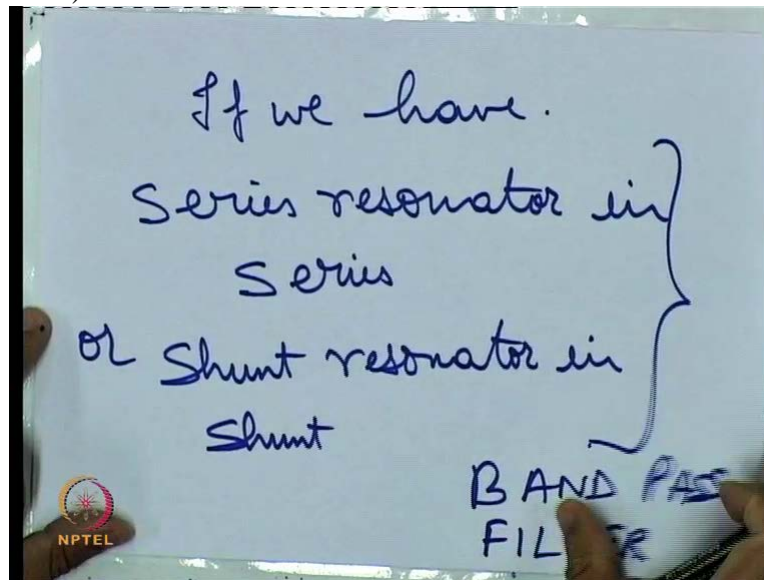 If we have.
Series resonator in
Series
or Shunt resonator in
Shunt
BAND PASS
NPTEL